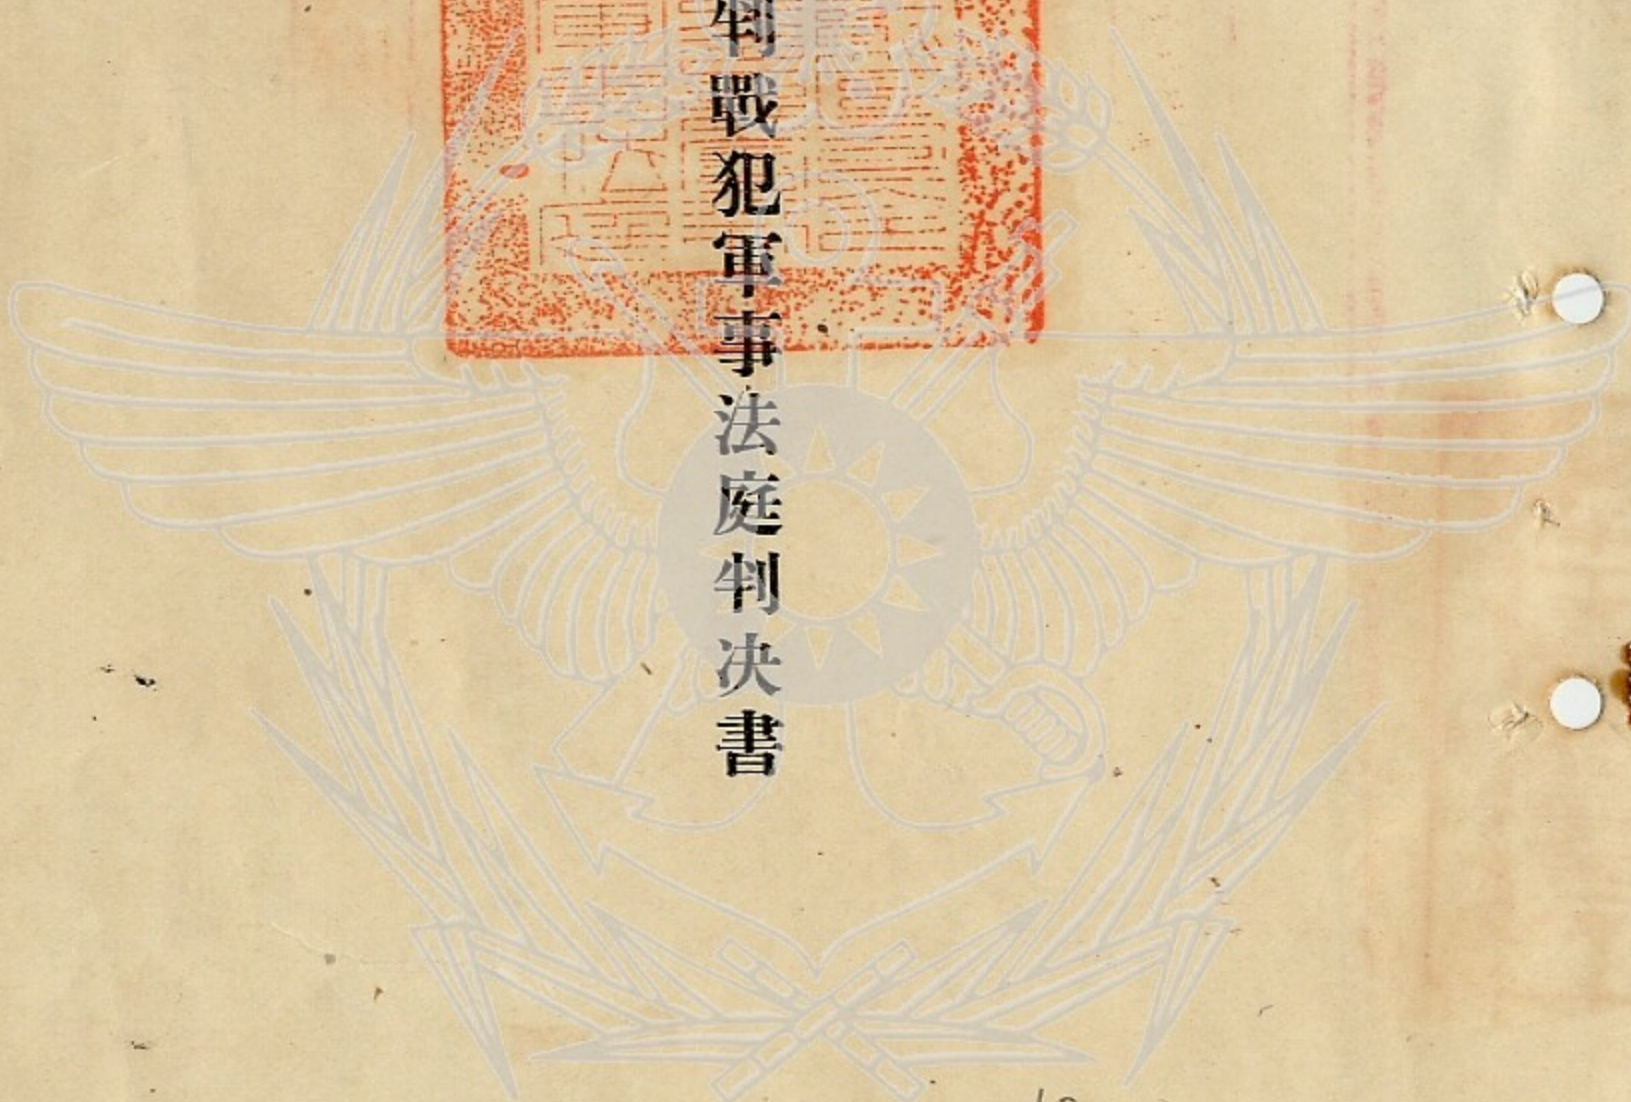 判戰犯軍事法庭判決書